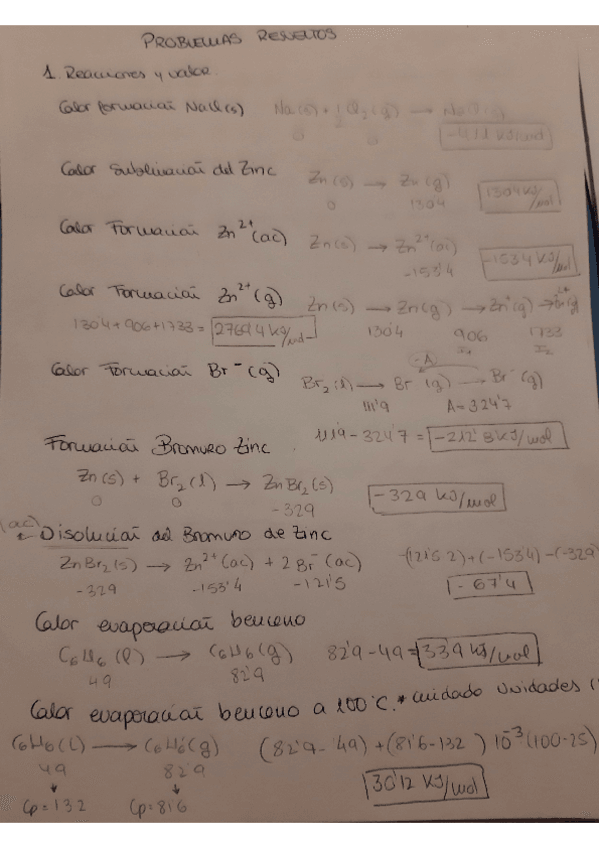 PROBLEMAS RESUELTOS
1. Reacciones y valor
Calor formación NaCl(s) Na(s) + 1/2 Cl2(g) → NaCl(s)
0 0
-411 kJ/mol
Calor Sublimación del Zinc Zn(s) → Zn(g) 130'4 kJ/mol
0 130'4
Calor Formación Zn2+(ac) Zn(s) → Zn2+(ac) -153'4 kJ/mol
-153'4
Calor Formación Zn2+(g) Zn(s) → Zn(g) → Zn+(g) → Zn2+(g)
130'4+906+1733 = 2769'4 kJ/mol 130'4 906 1733
I1 I2
Calor Formación Br-(g) Br2(l) → Br(g) → Br-(g)
-A
111'9 A=324'7
111'9 - 324'7 = -212'8 kJ/mol
Formación Bromuro Zinc
Zn(s) + Br2(l) → ZnBr2(s) -329 kJ/mol
0 0 -329
(ac)
Disolución del Bromuro de Zinc
ZnBr2(s) → Zn2+(ac) + 2Br-(ac) -(121'5 2)+(-153'4)-(-329)
-329 -153'4 -121'5 -67'4
Calor evaporación benceno
C6H6(l) → C6H6(g) 82'9-49 = 33'9 kJ/mol
49 82'9
Calor evaporación benceno a 100°C. * cuidado unidades (
C6H6(l) → C6H6(g) (82'9-49)+(81'6-132)10-3(100-25)
49 82'9
Cp=132 Cp=81'6 30'12 kJ/mol